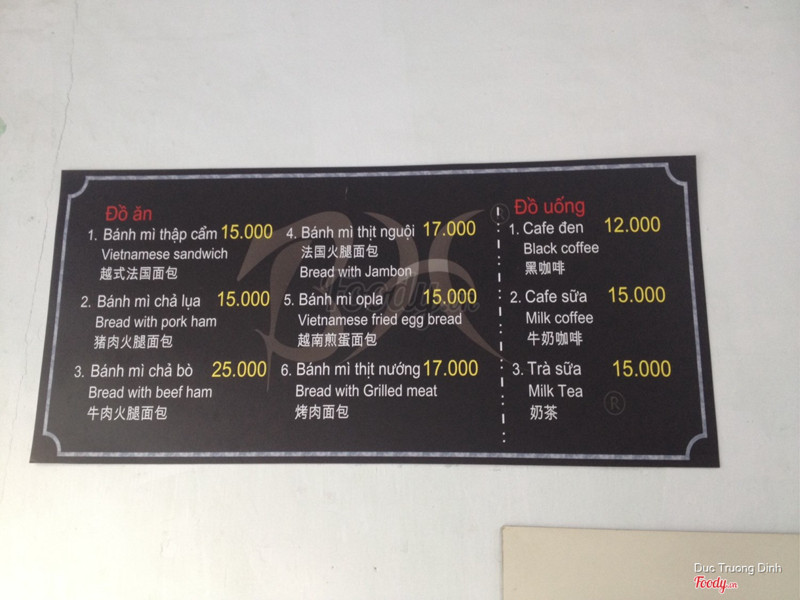 Đồ ăn
1. Bánh mì thập cẩm 15.000
Vietnamese sandwich
越式法国面包
2. Bánh mì chả lụa 15.000
Bread with pork ham
猪肉火腿面包
3. Bánh mì chả bò 25.000
Bread with beef ham
牛肉火腿面包
4. Bánh mì thịt nguội 17.000
法国火腿面包
Bread with Jambon
5. Bánh mì opla 15.000
Vietnamese fried egg bread
越南煎蛋面包
6. Bánh mì thịt nướng 17.000
Bread with Grilled meat
烤肉面包
Đồ uống
1. Cafe đen 12.000
Black coffee
黑咖啡
2. Cafe sữa 15.000
Milk coffee
牛奶咖啡
3. Trà sữa 15.000
Milk Tea
奶茶
®
Duc Truong Dinh
Foody.vn